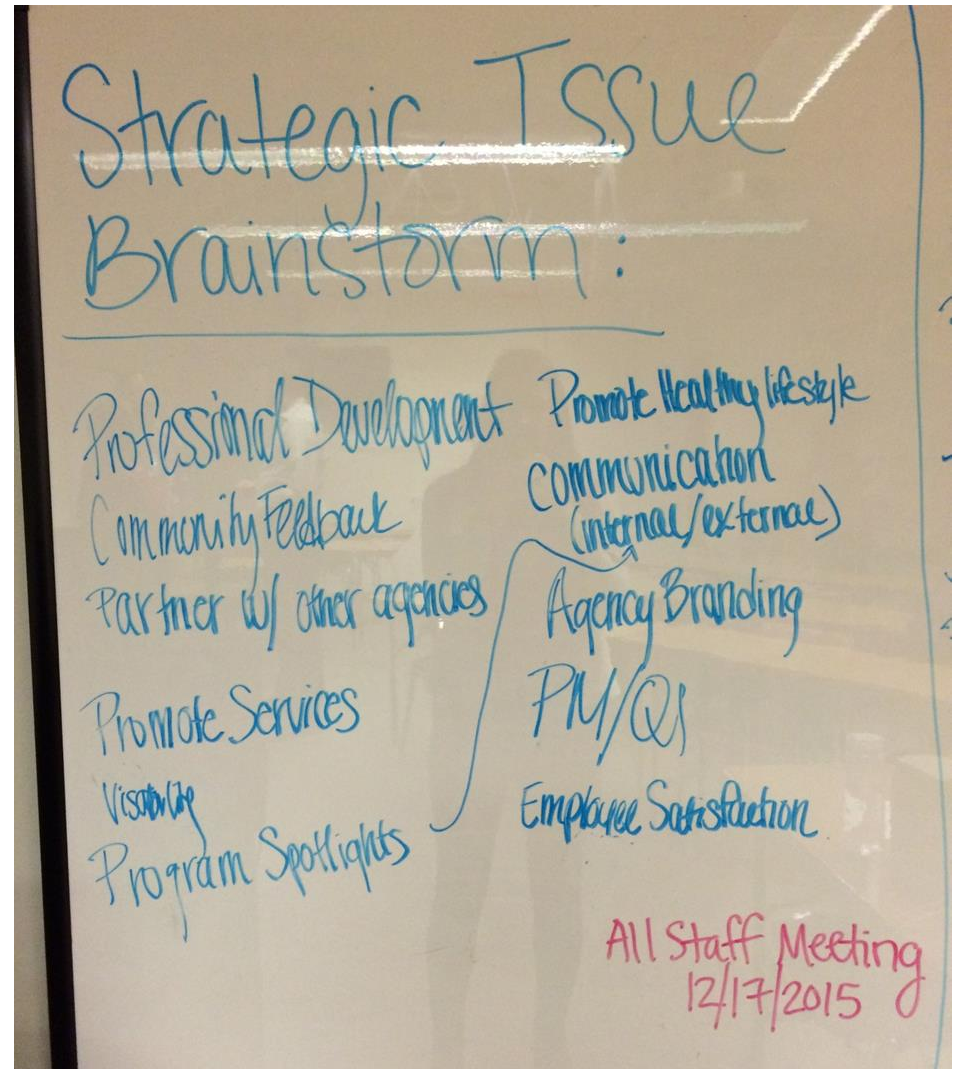 Strategic Issue
Brainstorm:
Professional Development
Community Feedback
Partner w/ other agencies
Promote Services
Program Spotlights
Promote Healthy lifestyle
Communication
(internal/external)
Agency Branding
PM/QI
Employee Satisfaction
All Staff Meeting
12/17/2015